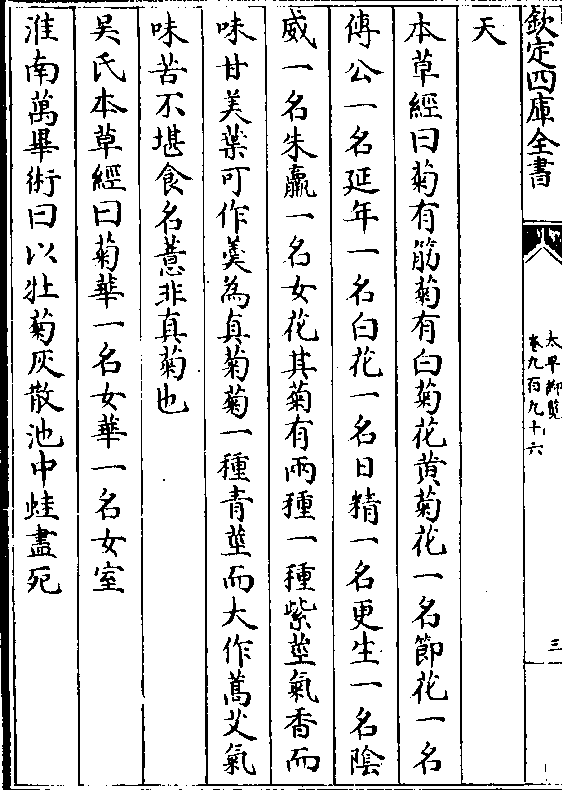 欽定四庫全書
太平御覽
卷九百九十六
三
天
本草經曰菊有筋菊有白菊花黄菊花一名節花一名
傅公一名延年一名白花一名日精一名更生一名陰
威一名朱羸一名女花其菊有兩種一種紫莖氣香而
味甘美葉可作羮為真菊菊一種青莖而大作蒿艾氣
味苦不堪食名薏非真菊也
吳氏本草經曰菊華一名女華一名女室
淮南萬畢術曰以牡菊灰散池中蛙盡死